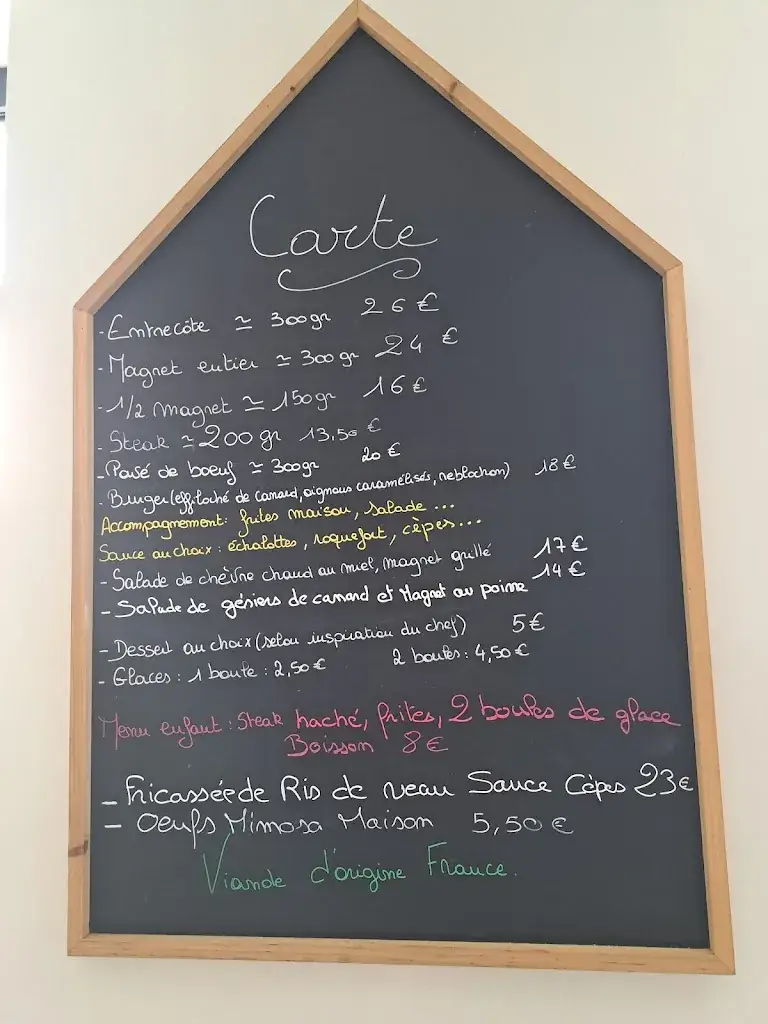 Carte
- Entrecôte ≃ 300gr 26 €
- Magret entier ≃ 300gr 24 €
- 1/2 magret ≃ 150gr 16 €
- Steak ≃ 200 gr 13,50 €
- Pavé de boeuf ≃ 300gr 20 €
- Burger (effiloché de canard, oignons caramélisés, reblochon) 18 €
Accompagnement : frites maison, salade ...
Sauce au choix : échalottes, roquefort, cèpes ...
- Salade de chèvre chaud au miel, magret grillé 17 €
- Salade de gésiers de canard et Magret au poivre 14 €
- Dessert au choix (selon inspiration du chef) 5 €
- Glaces : 1 boule : 2,50 € 2 boules : 4,50 €
Menu enfant : Steak haché, frites, 2 boules de glace
Boisson 8 €
- Fricassée de Ris de veau Sauce Cèpes 23 €
- Oeufs Mimosa Maison 5,50 €
Viande d'origine France.